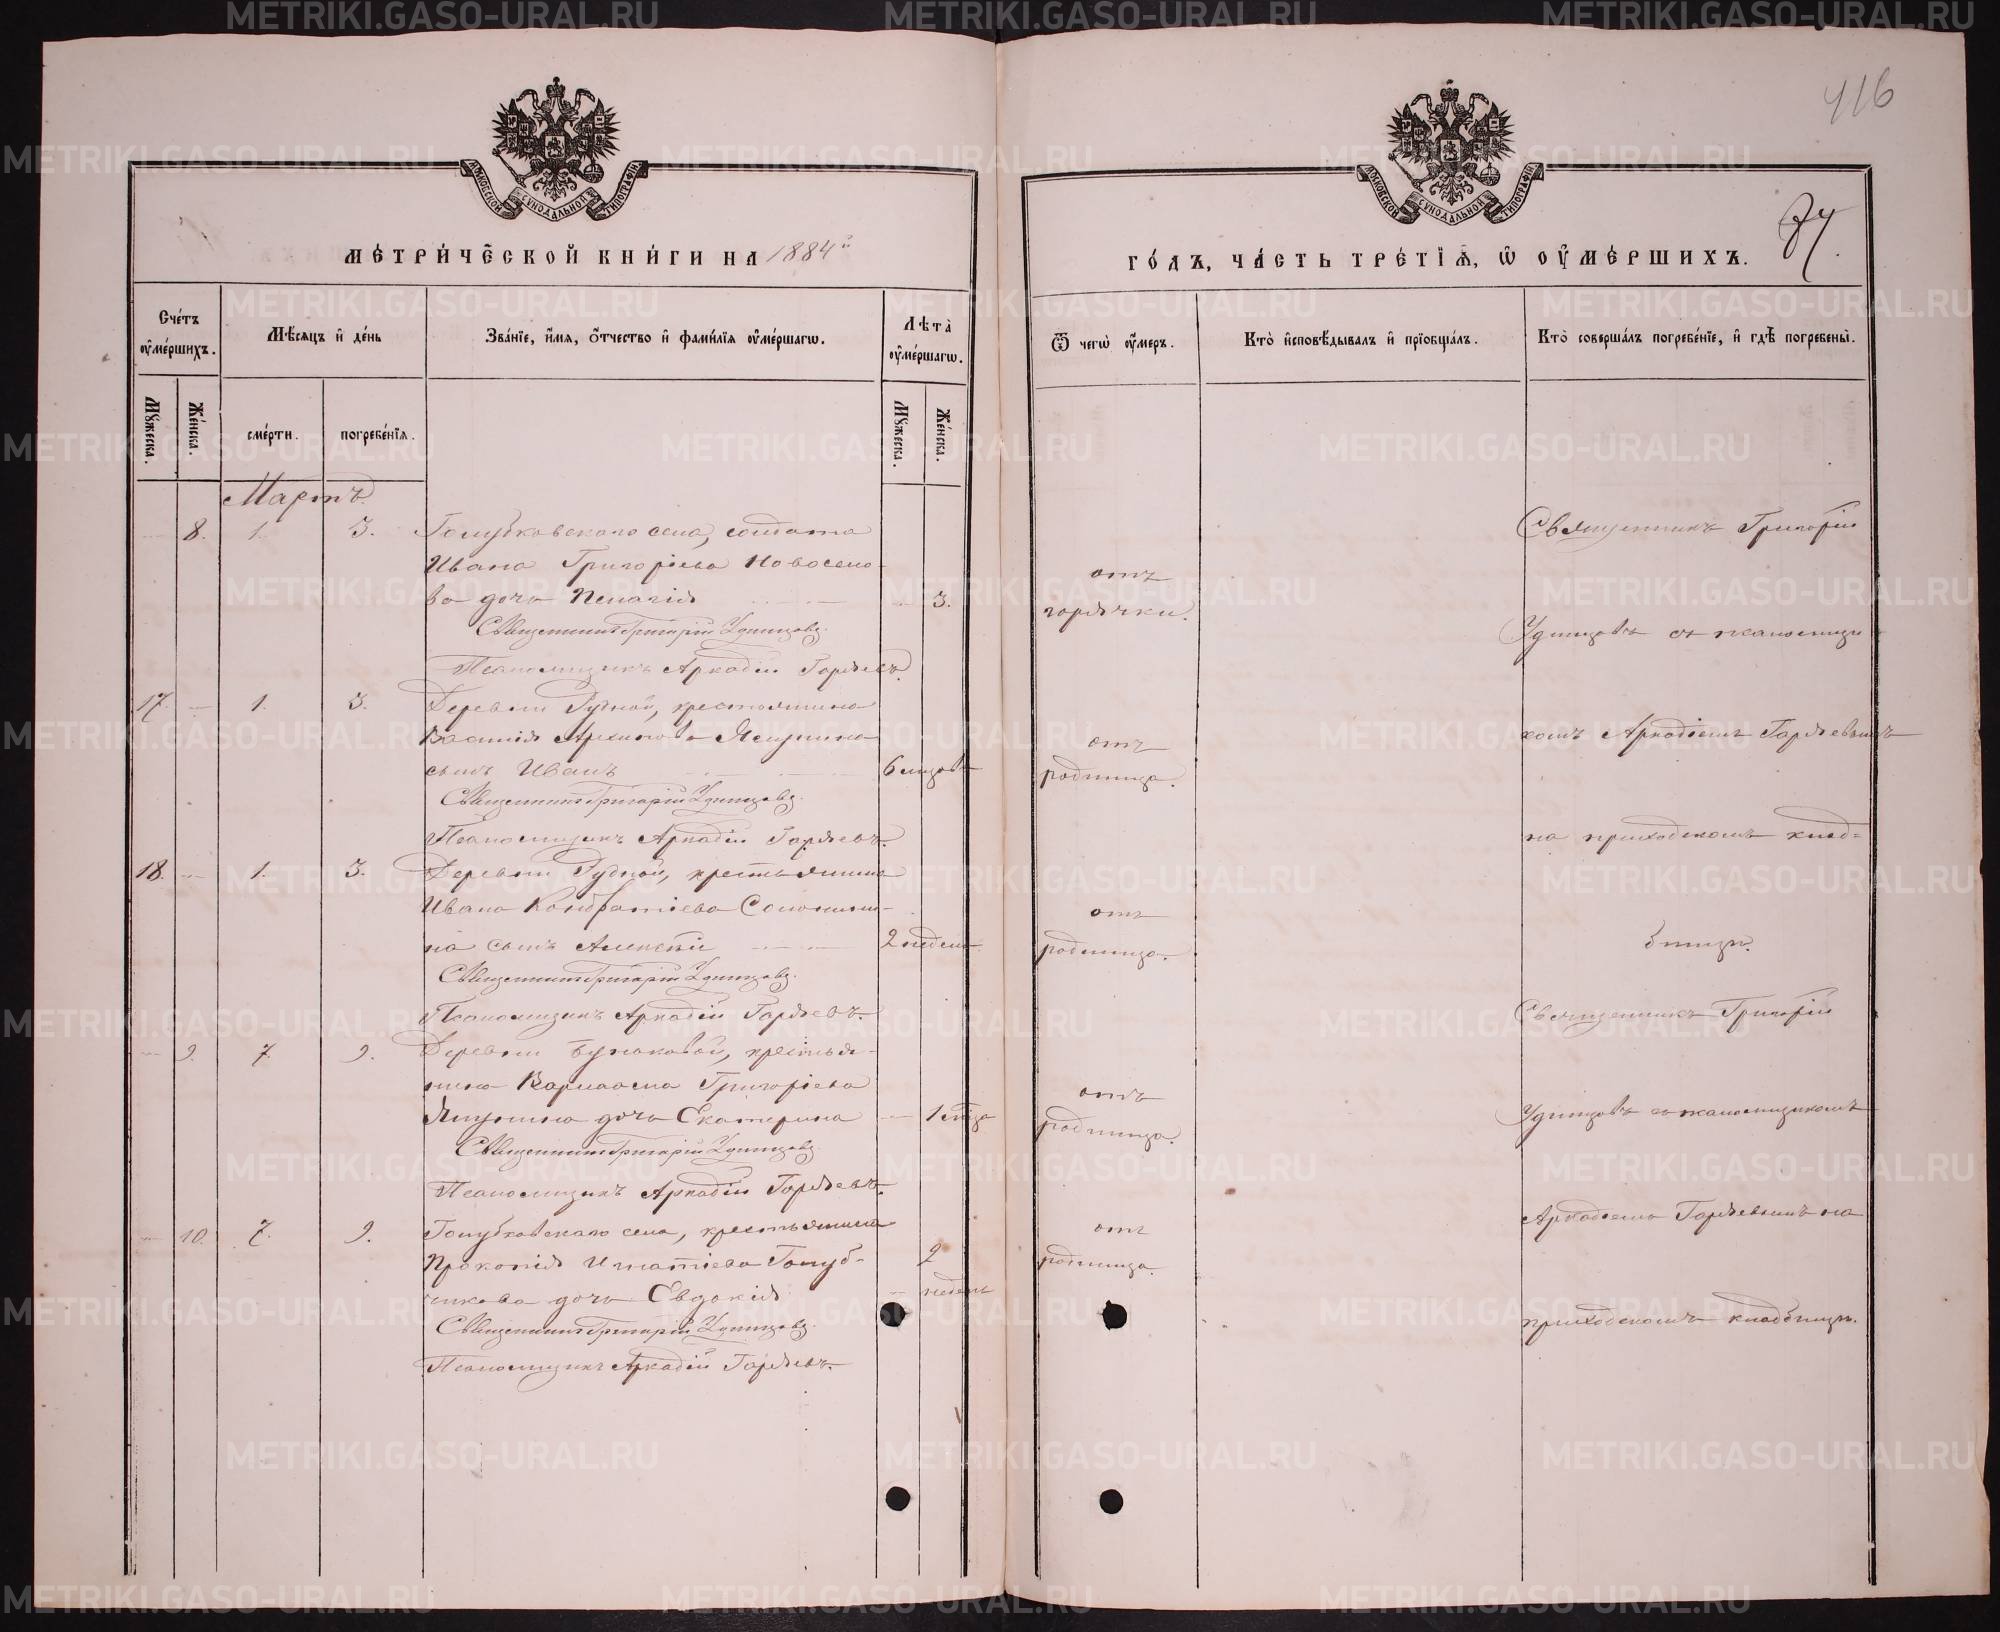 416
МОСКОВСКОЙ СУНОДАЛЬНОЙ ТИПОГРАФІИ.
МОСКОВСКОЙ СУНОДАЛЬНОЙ ТИПОГРАФІИ.
МЕТРИЧЕСКОЙ КНИГИ НА 1884й
ГОДЪ, ЧАСТЬ ТРЕТІЯ, Ѡ ОУМЕРШИХЪ.
Счетъ оумершихъ.
Мѣсяцъ и день
Званіе, имя, отчество и фамилія оумершагѡ.
Лѣта оумершагѡ.
Ѿ чегѡ оумеръ.
Кто исповѣдывалъ и пріобщалъ.
Кто совершалъ погребеніе, и гдѣ погребены.
Мужеска.
Женска.
смерти.
погребенія.
Мужеска.
Женска.
Мартъ.
8. 1. 3. Голубковскаго села, солдата
Ивана Григоріева Новосело-
ва дочь Пелагія 3.
отъ
горячки.
Священникъ Григорій Удинцовъ.
Псаломщикъ Аркадій Гордѣевъ.
17. 1. 3. Деревни Рудной, крестьянина
Василія Архипова Ячунина
сынъ Иванъ 6 мѣсяц
отъ
родимца.
Священникъ Григорій Удинцовъ.
Псаломщикъ Аркадій Гордѣевъ.
18. 1. 3. Деревни Рудной, крестьянина
Ивана Кондратіева Солонини-
на сынъ Алексѣй 2 недѣли
отъ
родимца.
Священникъ Григорій Удинцовъ.
Псаломщикъ Аркадій Гордѣевъ.
9. 7. 9. Деревни Бунаковой, крестья-
нина Варлаама Григоріева
Ячунина дочь Екатерина 1 мца
отъ
родимца.
Священникъ Григорій Удинцовъ
Псаломщикъ Аркадій Гордѣевъ.
10. 7. 9. Голубковскаго села, крестьянина
Прокопія Игнатіева Голуб-
чикова дочь Евдокія 2 недѣли
отъ
родимца.
Священникъ Григорій Удинцовъ.
Псаломщикъ Аркадій Гордѣевъ.
Священникъ Григорій
Удинцовъ съ псаломщи
комъ Аркадіемъ Гордѣевымъ
на приходскомъ клад-
бищѣ.
Священникъ Григорій
Удинцовъ съ псаломщикомъ
Аркадіемъ Гордѣевымъ на
приходскомъ кладбищѣ.
METRIKI.GASO-URAL.RU